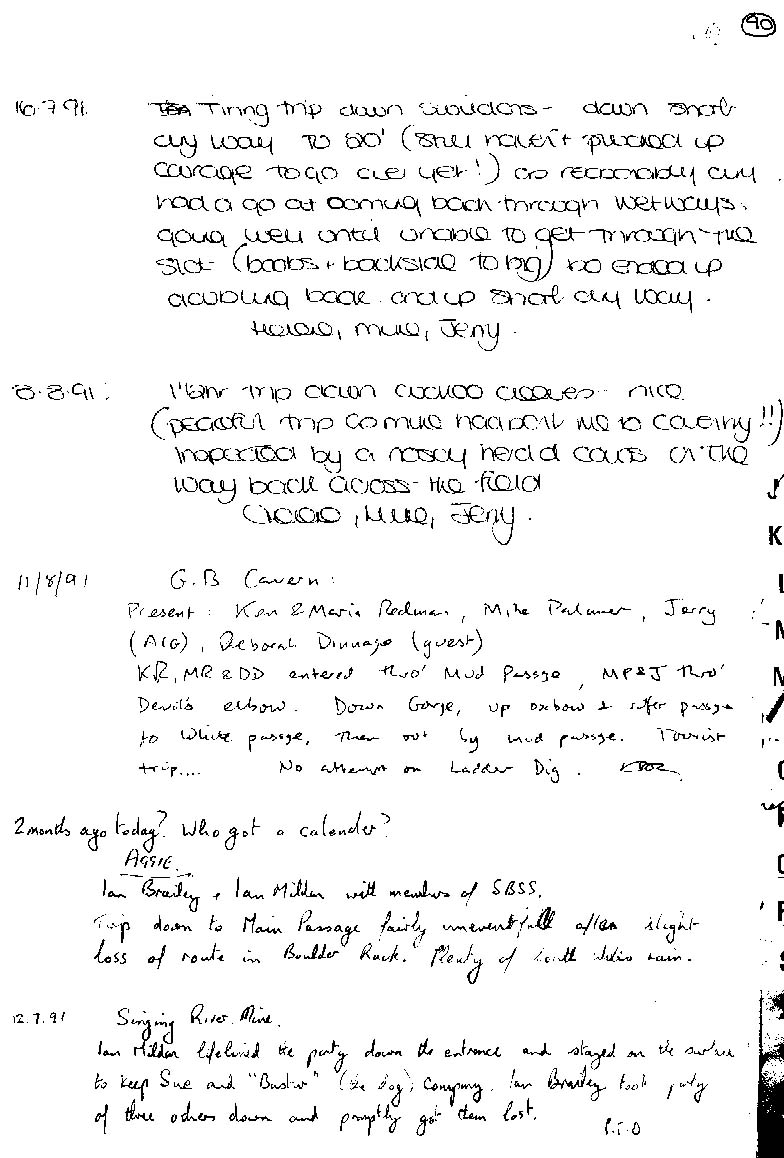 90
16.7.91. Tiring trip down Swildons - down short
dry way to 20' (Still haven't plucked up
courage to go over yet!) as reasonably dry
had a go at coming back through Wetways,
going well until unable to get through the
Slot (boobs + backside to big) so ended up
doubling back and up short dry way.
Mike, Jerry.
8.8.91: trip down cuckoo cleeves - nice
(peaceful trip as Mike had bent to Coventry!!)
inspected by a nosey herd of cows on the
way back across the field
Mike, Jerry.
11/8/91 G.B Cavern:
Present: Ken & Maria Redman, Mike Palamer, Jerry
(AIG), Deborah Dinnage (guest)
KR, MR & DD entered thro' Mud Passge, MP&J thro'
Devil's elbow. Down Gorge, up oxbow & rifer passge
to White passge, then out by mud passge. Tourist
trip.... No attempt on Ladder Dig.
2 months ago today? Who got a calender?
AGGIE.
Ian Brailey + Ian Milden with members of SBSS.
Trip down to Main Passage fairly uneventfull after slight
loss of route in Boulder Ruck. Plenty of South Wales rain.
12.7.91 Singing River Mine.
Ian Milden lifelined the party down the entrance and stayed on the surface
to keep Sue and "Buster" (the dog) company. Ian Brailey took party
of three others down and promptly got them lost.
P.T.O